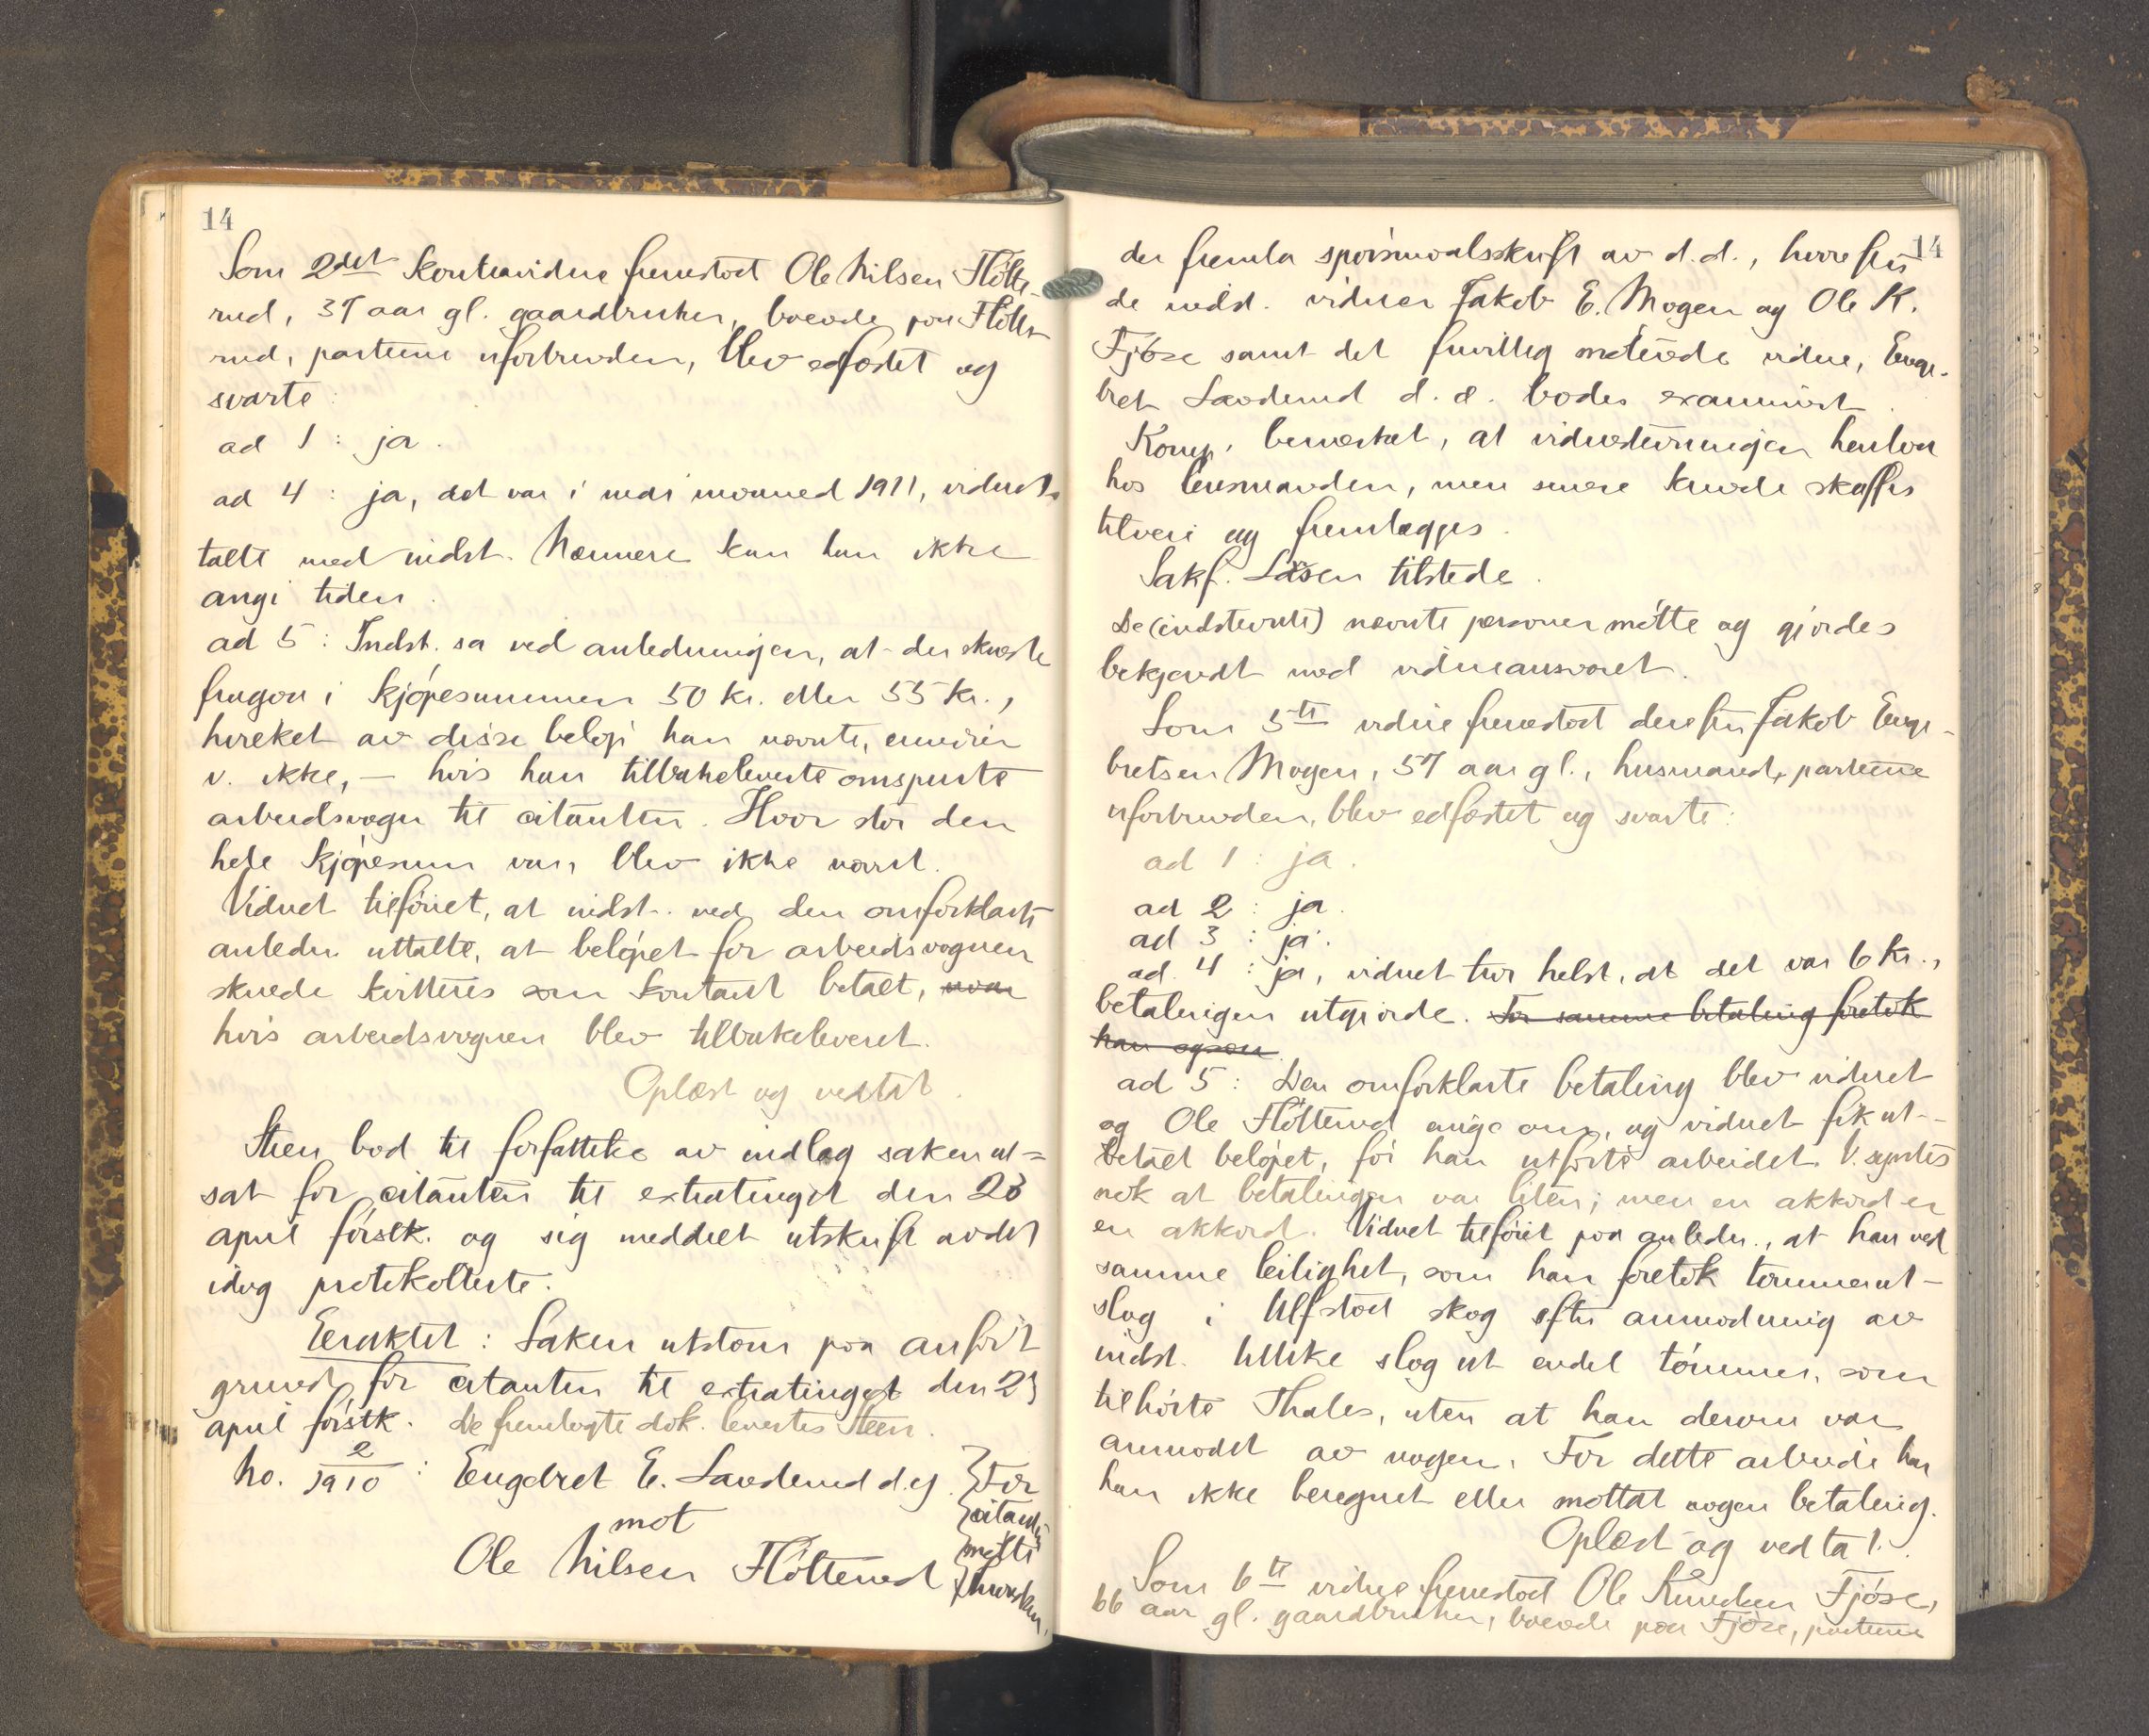 14
Som 2det kontravidne fremstod Ole Nilsen Flötte-
rud, 37 aar gl. gaardbruker, boende paa Flötte-
rud, parterne uforbunden, blev edfæstet og
svarte:
ad 1: ja.
ad 4: ja, det var i mai maaned 1911, vidnet
talte med indst. Nærmere kan han ikke
angi tiden.
ad 5: Indst. sa ved anledningen, at der skulde
fragaa i kjöpesummen 50 kr. eller 55 kr.,
hvilket av disse belöp han nævnte, erindrer
v. ikke, — hvis han tilbakeleverte omspurte
arbeidsvogn til citanten. Hvor stor den
hele kjöpesum var, blev ikke nævnt.
Vidnet tilföiet, at indst. ved den omforklarte
anledn. uttalte, at belöpet for arbeidsvognen
skulde kvitteres som kontant betalt,
hvis arbeidsvognen blev tilbakeleveret.
Oplæst og vedtat.
Steen bad til forfattelse av indlæg saken ut=
sat for citanten til extratinget den 23
april förstk. og sig meddelt utskrift av det
idag protokollerte.
Eragtet: Saken utstaar paa anfört
grund for citanten til extratinget den 23
april förstk. De fremlagte dok. levertes Steen.
No. 2/1910: Engebret E. Lavderud d.y. } For
mot } citanten
Ole Nilsen Flötterud } mötte
} huusken,
14
der fremla spörsmaalsskrift av d.d., hvorefter
de indst. vidner Jakob E. Mogen og Ole K.
Fjöse samt det frivillig mötende vidne, Enge-
bret Lavderud d. æ. bades examinert.
Komp. bemærket, at vidnestevningen henlaa
hos lensmanden, men senere kunde skaffes
tilveie og fremlægges.
Sakf. Lasen tilstede.
De (indstevnte) nævnte personer mötte og gjordes
bekjendt med vidneansvaret.
Som 5te vidne fremstod derefter Jakob Enge-
bretsen Mogen, 57 aar gl., husmand, parterne
uforbunden, blev edfæstet og svarte:
ad 1: ja.
ad 2: ja.
ad 3: ja.
ad 4: ja, vidnet tror helst, at det var 6 kr.,
betalingen utgjorde. For samme betaling foretok
han ogsaa
ad 5: Den omforklarte betaling blev vidnet
og Ole Flötterud enige om, og vidnet fik ut-
betalt belöpet, för han utförte arbeidet. V. syntes
nok at betalingen var liten; men en akkord er
en akkord. Vidnet tilföiet paa anledn., at han ved
samme leilighet, som han foretok tömmerut-
slag i Ulfstad skog efter anmodning av
indst. tillike slog ut endel tömmer, som
tilhörte Thales, uten at han derom var
anmodet av nogen. For dette arbeide har
han ikke beregnet eller mottat nogen betaling.
Oplæst og vedtat.
Som 6te vidne fremstod Ole Knudsen Fjöse,
66 aar gl. gaardbruker, boende paa Fjöse, parterne